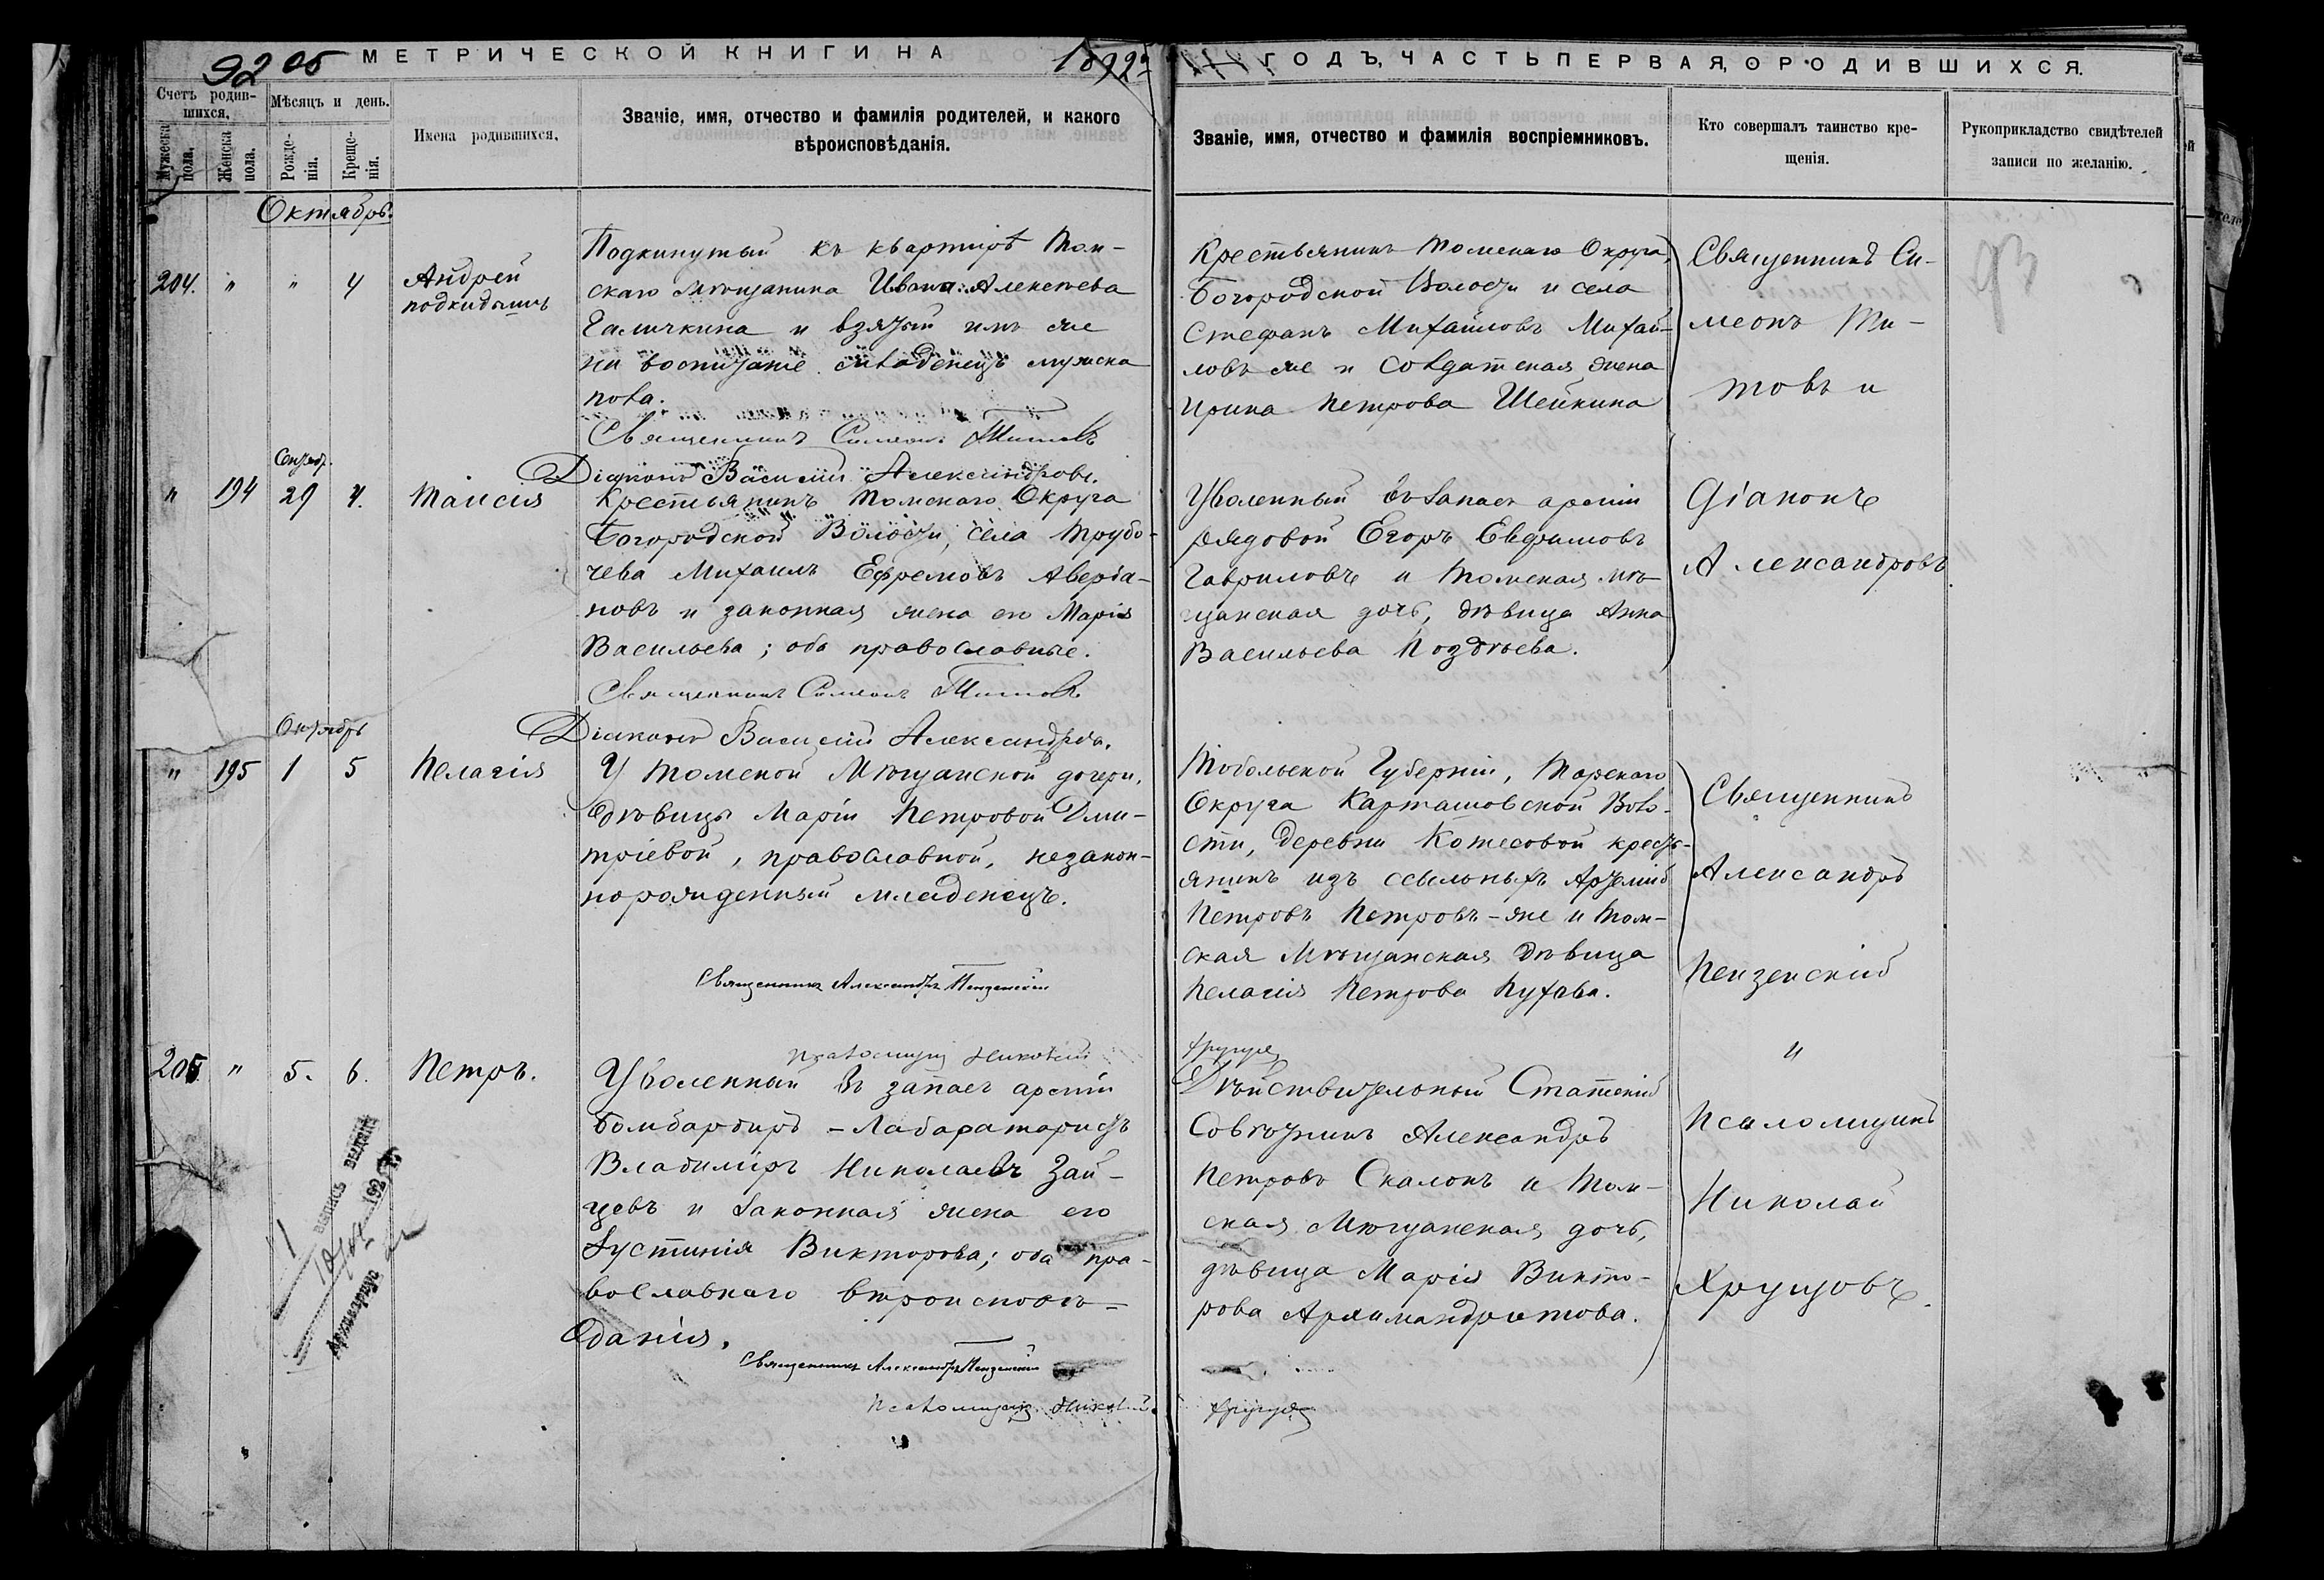 92 об
МЕТРИЧЕСКОЙ КНИГИ НА 1892й ГОДЪ, ЧАСТЬ ПЕРВАЯ, О РОДИВШИХСЯ.
Счетъ родив-
шихся.
Мужеска пола.
Женска пола.
Мѣсяцъ и день.
Рожде-
нія.
Креще-
нія.
Имена родившихся.
Званіе, имя, отчество и фамилія родителей, и какого
вѣроисповѣданія.
Званіе, имя, отчество и фамилія воспріемниковъ.
Кто совершалъ таинство кре-
щенія.
Рукоприкладство свидѣтелей
записи по желанію.
Октябрь.
204. " " 4
Андрей
подкидышъ
Подкинутый къ квартирѣ Том-
скаго мѣщанина Ивана Алексѣева
Галичкина и взятый имъ же
на воспитаніе младенецъ мужска
пола.
Священникъ Симеонъ Титовъ
Діаконъ Василій Александровъ.
Крестьянинъ Томскаго Округа,
Богородской Волости и села
Стефанъ Михайловъ Михай-
ловъ же и солдатская жена
Ирина Петрова Шейкина
Священникъ Си-
меонъ Ти-
товъ и
Сентяб.
" 194 29 4. Таисія
Крестьянинъ Томскаго Округа
Богородской Волости, села Трубо-
чева Михаилъ Ефремовъ Аверья-
новъ и законная жена его Марія
Васильева; оба православные.
Священникъ Симеонъ Титовъ
Діаконъ Василій Александровъ.
Уволенный въ запасъ арміи
рядовой Егоръ Евфимовъ
Гавриловъ и Томская мѣ-
щанская дочь, дѣвица Анна
Васильева Поздѣева.
Діаконъ
Александровъ
Октябрь
" 195 1 5 Пелагія
У Томской Мѣщанской дочери,
дѣвицы Маріи Петровой Дми-
тріевой, православной, незакон-
норожденный младенецъ.
Священникъ Александръ Пензенскій
Псаломщикъ Николай Хрущовъ
Тобольской Губерніи, Тарскаго
Округа Карташовской Воло-
сти, деревни Котесовой кресть-
янинъ изъ ссыльныхъ Артемій
Петровъ Петровъ-же и Том-
ская Мѣщанская дѣвица
Пелагія Петрова Пухова.
Священникъ
Александръ
Пензенскій
и
Псаломщикъ
Николай
Хрущовъ.
205. " 5. 6. Петръ.
Уволенный въ запасъ арміи
Бомбардиръ-Лабаратористъ
Владиміръ Николаевъ Зай-
цевъ и законная жена его
Іустинія Викторова; оба пра-
вославнаго вѣроисповѣ-
данія.
Священникъ Александръ Пензенскій
Псаломщикъ Николай Хрущовъ
Дѣйствительный Статскій
Совѣтникъ Александръ
Петровъ Скалонъ и Том-
ская Мѣщанская дочь,
дѣвица Марія Викто-
рова Архимандритова.
выпись выдана
Архивариус